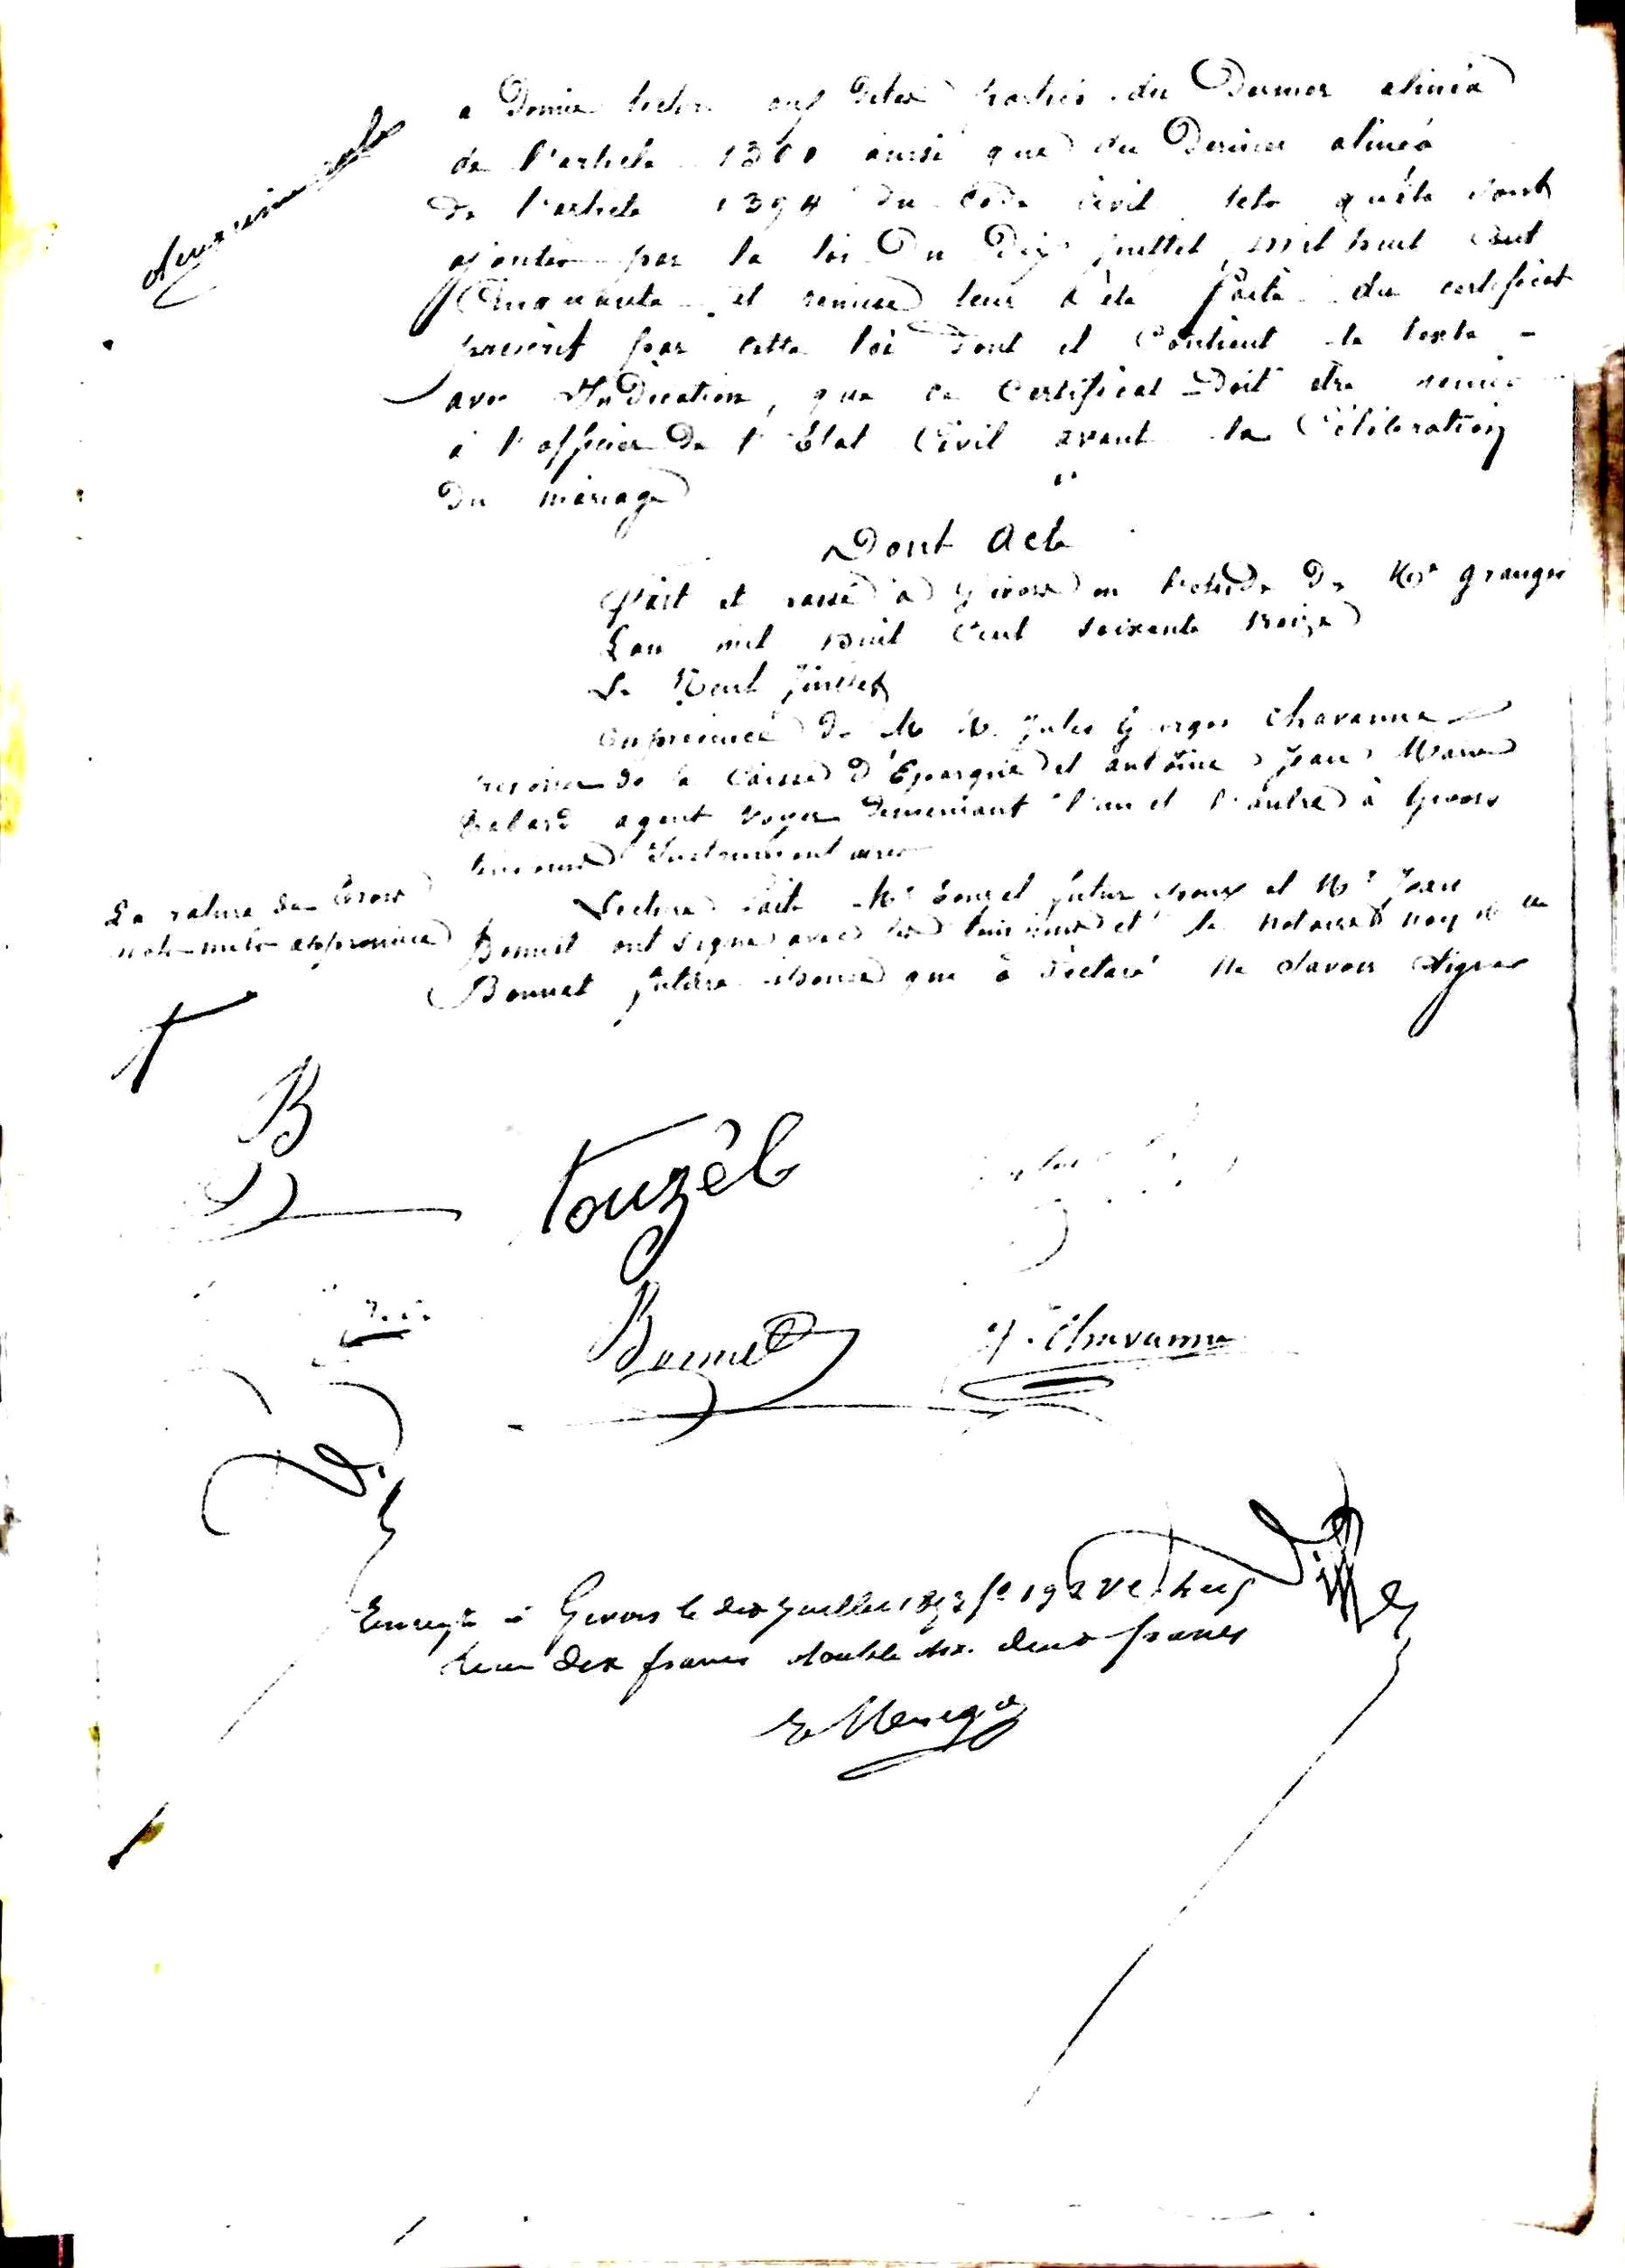 a Donné lecture aux dites parties du Dernier alinéa
de l'article 1390 ainsi que du Dernier alinéa
De l'article 1394 du Code Civil tels qu'ils sont
ajoutés par la loi Du Dix juillet mil huit Cent
Cinquante et remise leur a été faite du certificat
prescrit par cette loi dont il Contient le texte -
avec Indication, que ce Certificat Doit être remis
à l'officier De l'État Civil avant la Célébration
Du mariage
Dont Acte
Fait et passé à Givors en l'étude De Me Granger
L'an mil huit Cent soixante treize
Le Neuf Juillet
En présence De M M. Jules Georges Chavanne
de la Caisse D'Epargne et antoine Jean Marie
agent voyer Demeurant l'un et l'autre à Givors
témoins Instrumentaires
Lecture faite Mr Touzet futur époux et Mr Jean
Bonnet ont signé avec les témoins et le notaire non
Bonnet future épouse qui a Déclaré Ne Savoir Signer
La rature de trois
mots nuls approuvée
B
Touzet
Bonnet
J. Chavanne
Enregé à Givors le dix Juillet 1873 fo 192 Vo
Reçu dix francs double dix. deux francs